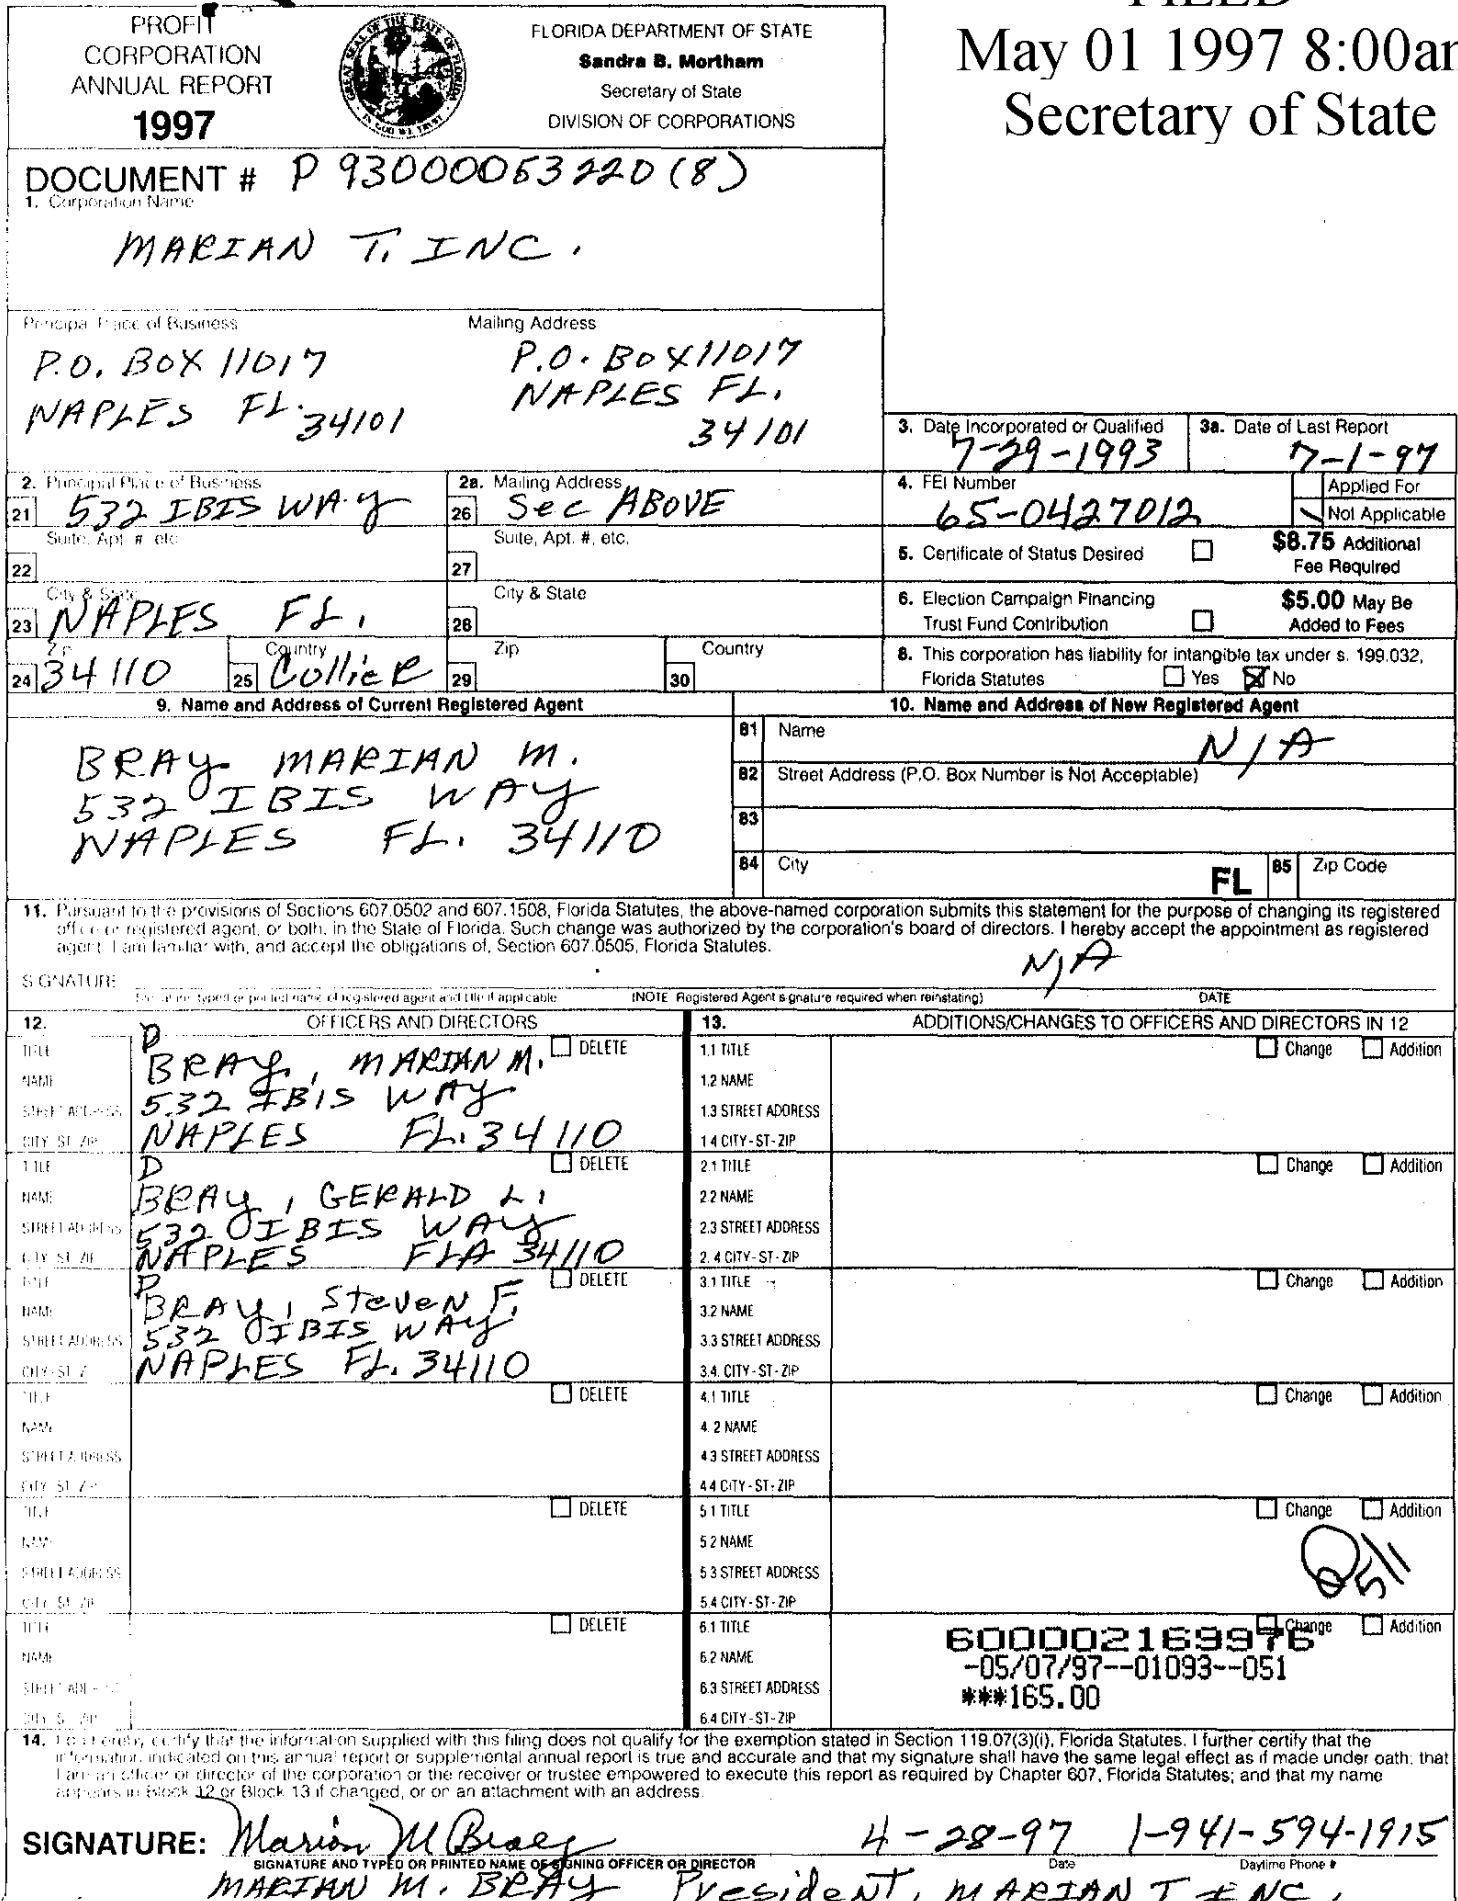 PROFIT
CORPORATION
ANNUAL REPORT
1997
FLORIDA DEPARTMENT OF STATE
Sandra B. Mortham
Secretary of State
DIVISION OF CORPORATIONS
FILED
May 01 1997 8:00am
Secretary of State
DOCUMENT # P 93000053220 (8)
1. Corporation Name
MARIAN T. INC.
Principal Place of Business
P.O. BOX 11017
NAPLES FL. 34101
Mailing Address
P.O. BOX 11017
NAPLES FL.
34101
3. Date Incorporated or Qualified
7-29-1993
3a. Date of Last Report
7-1-97
2. Principal Place of Business
21 532 IBIS WAY
2a. Mailing Address
26 See ABOVE
4. FEI Number
65-0427012
Applied For
Not Applicable
Suite, Apt. #, etc.
22
Suite, Apt. #, etc.
27
5. Certificate of Status Desired
$8.75 Additional
Fee Required
City & State
23 NAPLES FL.
City & State
28
6. Election Campaign Financing
Trust Fund Contribution
$5.00 May Be
Added to Fees
Zip
24 34110
Country
25 Collier
Zip
29
Country
30
8. This corporation has liability for intangible tax under s. 199.032,
Florida Statutes Yes No
9. Name and Address of Current Registered Agent
BRAY MARIAN M.
532 IBIS WAY
NAPLES FL. 34110
10. Name and Address of New Registered Agent
81 Name
N/A
82 Street Address (P.O. Box Number is Not Acceptable)
83
84 City
FL
85 Zip Code
11. Pursuant to the provisions of Sections 607.0502 and 607.1508, Florida Statutes, the above-named corporation submits this statement for the purpose of changing its registered
office or registered agent, or both, in the State of Florida. Such change was authorized by the corporation's board of directors. I hereby accept the appointment as registered
agent. I am familiar with, and accept the obligations of, Section 607.0505, Florida Statutes.
N/A
SIGNATURE
Signature, typed or printed name of registered agent and title if applicable (NOTE Registered Agent signature required when reinstating) DATE
12. OFFICERS AND DIRECTORS
TITLE P DELETE
NAME BRAY, MARIAN M.
STREET ADDRESS 532 IBIS WAY
CITY-ST-ZIP NAPLES FL. 34110
TITLE D DELETE
NAME BRAY, GERALD L.
STREET ADDRESS 532 IBIS WAY
CITY-ST-ZIP NAPLES FLA 34110
TITLE D DELETE
NAME BRAY, Steven F.
STREET ADDRESS 532 IBIS WAY
CITY-ST-Z NAPLES FL. 34110
TITLE DELETE
NAME
STREET ADDRESS
CITY-ST-ZIP
TITLE DELETE
NAME
STREET ADDRESS
CITY-ST-ZIP
TITLE DELETE
NAME
STREET ADDRESS
CITY-ST-ZIP
13. ADDITIONS/CHANGES TO OFFICERS AND DIRECTORS IN 12
1.1 TITLE Change Addition
1.2 NAME
1.3 STREET ADDRESS
1.4 CITY-ST-ZIP
2.1 TITLE Change Addition
2.2 NAME
2.3 STREET ADDRESS
2.4 CITY-ST-ZIP
3.1 TITLE Change Addition
3.2 NAME
3.3 STREET ADDRESS
3.4. CITY-ST-ZIP
4.1 TITLE Change Addition
4.2 NAME
4.3 STREET ADDRESS
4.4 CITY-ST-ZIP
5.1 TITLE Change Addition
5.2 NAME
5.3 STREET ADDRESS
5.4 CITY-ST-ZIP
5/1
6.1 TITLE Change Addition
6.2 NAME
6.3 STREET ADDRESS
6.4 CITY-ST-ZIP
600002169976
-05/07/97--01093--051
***165.00
14. I do hereby certify that the information supplied with this filing does not qualify for the exemption stated in Section 119.07(3)(i), Florida Statutes. I further certify that the
information indicated on this annual report or supplemental annual report is true and accurate and that my signature shall have the same legal effect as if made under oath; that
I am an officer or director of the corporation or the receiver or trustee empowered to execute this report as required by Chapter 607, Florida Statutes; and that my name
appears in Block 12 or Block 13 if changed, or on an attachment with an address.
SIGNATURE: Marian M Bray 4-28-97 1-941-594-1915
SIGNATURE AND TYPED OR PRINTED NAME OF SIGNING OFFICER OR DIRECTOR Date Daytime Phone #
MARIAN M. BRAY President, MARIAN T INC.